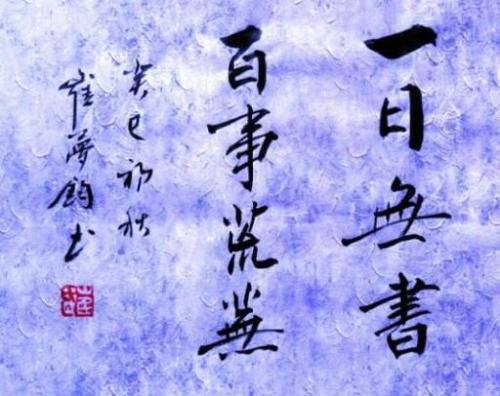 一日無書
百事荒蕪
癸巳初秋
崔夢鈞书